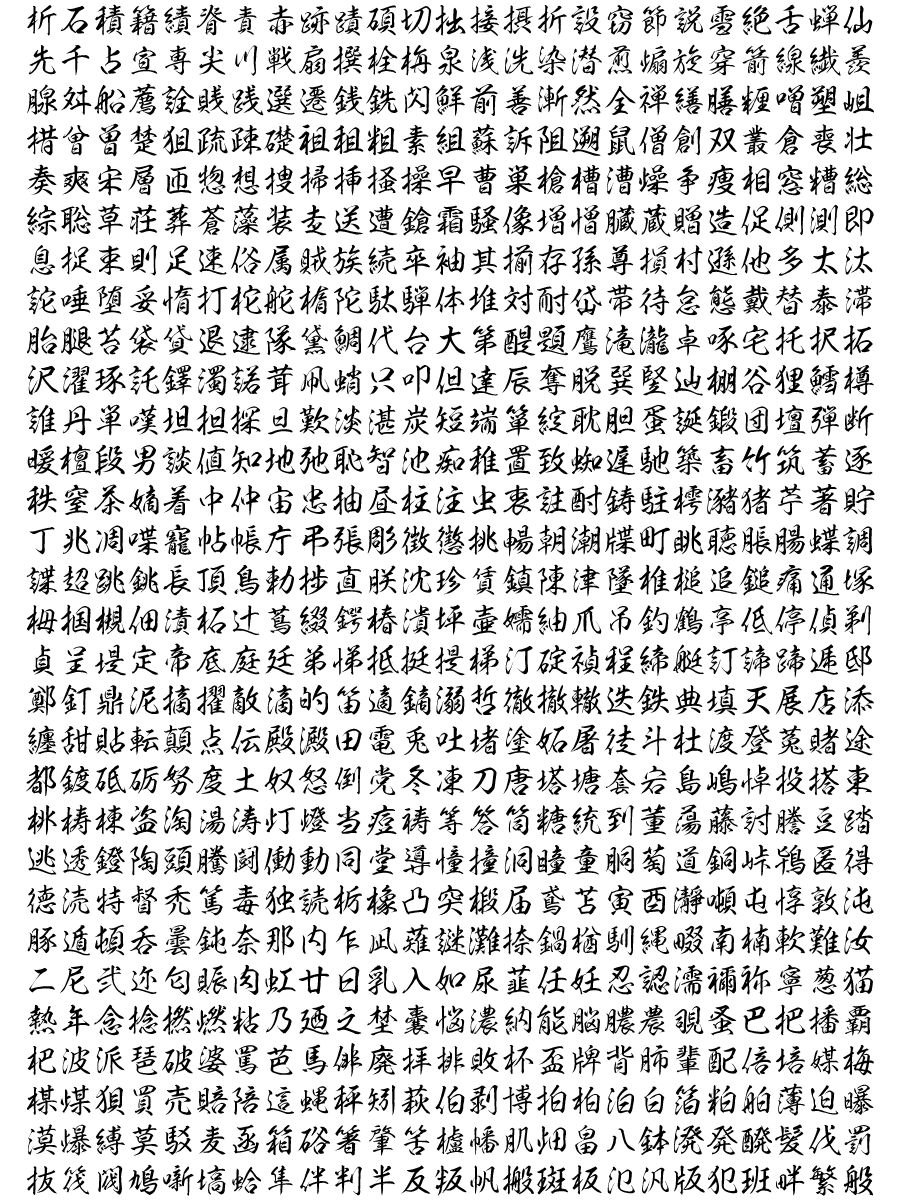 析石積籍績脊責赤跡蹟碩切拙接摂折設窃節説雪絶舌蝉仙
先千占宣専尖川戦扇撰栓栴泉浅洗染潜煎煽旋穿箭線繊羨
腺舛船薦詮賎践選遷銭銑閃鮮前善漸然全禅繕膳糎噌塑岨
措曾曽楚狙疏疎礎祖租粗素組蘇訴阻遡鼠僧創双叢倉喪壮
奏爽宋層匝惣想捜掃挿掻操早曹巣槍槽漕燥争痩相窓糟総
綜聡草荘葬蒼藻装走送遭鎗霜騒像増憎臓蔵贈造促側測即
息捉束則足速俗属賊族続卒袖其揃存孫尊損村遜他多太汰
詑唾堕妥惰打柁舵楕陀駄騨体堆対耐岱帯待怠態戴替泰滞
胎腿苔袋貸退逮隊黛鯛代台大第醍題鷹滝瀧卓啄宅托択拓
沢濯琢託鐸濁諾茸凧蛸只叩但達辰奪脱巽竪辿棚谷狸鱈樽
誰丹単嘆坦担探旦歎淡湛炭短端箪綻耽胆蛋誕鍛団壇弾断
暖檀段男談値知地弛恥智池痴稚置致蜘遅馳築畜竹筑蓄逐
秩窒茶嫡着中仲宙忠抽昼柱注虫衷註酎鋳駐樗瀦猪苧著貯
丁兆凋喋寵帖帳庁弔張彫徴懲挑暢朝潮牒町眺聴脹腸蝶調
諜超跳銚長頂鳥勅捗直朕沈珍賃鎮陳津墜椎槌追鎚痛通塚
栂掴槻佃漬柘辻蔦綴鍔椿潰坪壷嬬紬爪吊釣鶴亭低停偵剃
貞呈堤定帝底庭廷弟悌抵挺提梯汀碇禎程締艇訂諦蹄逓邸
鄭釘鼎泥摘擢敵滴的笛適鏑溺哲徹撤轍迭鉄典填天展店添
纏甜貼転顛点伝殿澱田電兎吐堵塗妬屠徒斗杜渡登菟賭途
都鍍砥砺努度土奴怒倒党冬凍刀唐塔塘套宕島嶋悼投搭東
桃梼棟盗淘湯涛灯燈当痘祷等答筒糖統到董蕩藤討謄豆踏
逃透鐙陶頭騰闘働動同堂導憧撞洞瞳童胴萄道銅峠鴇匿得
徳涜特督禿篤毒独読栃橡凸突椴届鳶苫寅酉瀞噸屯惇敦沌
豚遁頓呑曇鈍奈那内乍凪薙謎灘捺鍋楢馴縄畷南楠軟難汝
二尼弐迩匂賑肉虹廿日乳入如尿韮任妊忍認濡禰祢寧葱猫
熱年念捻撚燃粘乃廼之埜嚢悩濃納能脳膿農覗蚤巴把播覇
杷波派琶破婆罵芭馬俳廃拝排敗杯盃牌背肺輩配倍培媒梅
楳煤狽買売賠陪這蝿秤矧萩伯剥博拍柏泊白箔粕舶薄迫曝
漠爆縛莫駁麦函箱硲箸肇筈櫨幡肌畑畠八鉢溌発醗髪伐罰
抜筏閥鳩噺塙蛤隼伴判半反叛帆搬斑板氾汎版犯班畔繁般